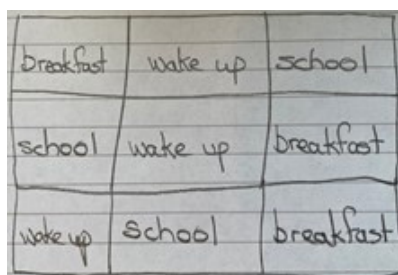 breakfast wake up school
school wake up breakfast
wake up school breakfast